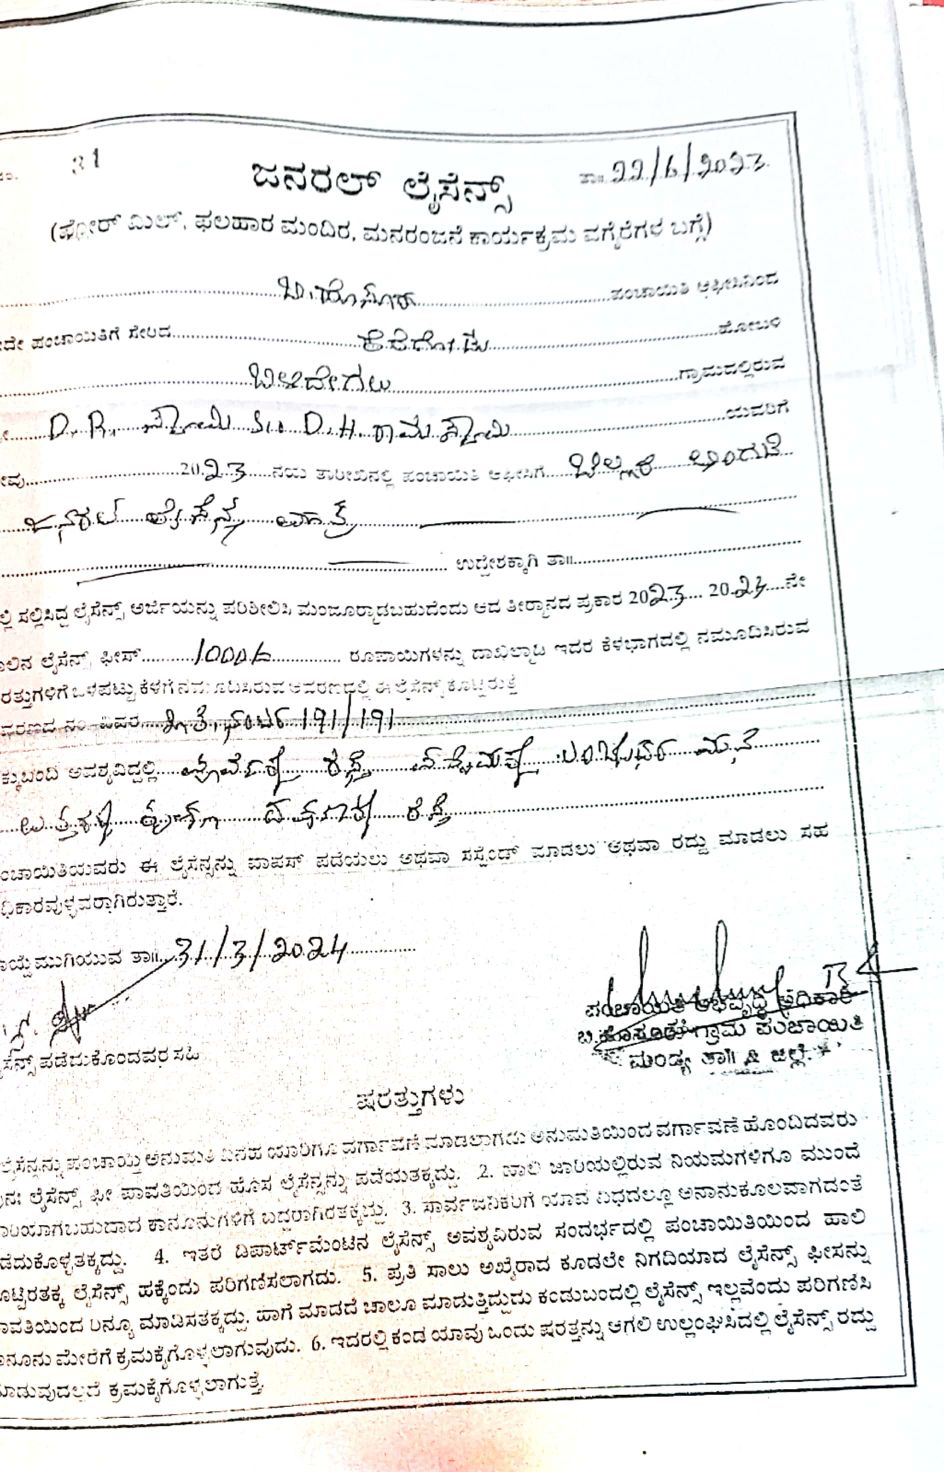 ನಂ. 31
ಜನರಲ್ ಲೈಸೆನ್ಸ್ ತಾ॥ 22/6/2023
(ಫ್ಲೋರ್ ಮಿಲ್, ಫಲಹಾರ ಮಂದಿರ, ಮನರಂಜನೆ ಕಾರ್ಯಕ್ರಮ ವಗೈರೆಗಳ ಬಗ್ಗೆ)
ಬಿ.ಹೊಸೂರು ಪಂಚಾಯಿತಿ ಆಫೀಸಿನಿಂದ
ಇದೇ ಪಂಚಾಯಿತಿಗೆ ಸೇರಿದ ಕೆರೆಗೋಡು ಹೋಬಳಿ
ಬಿಳಿದೇಗಲು ಗ್ರಾಮದಲ್ಲಿರುವ
D.R. ಸ್ವಾಮಿ S/o D.H. ರಾಮಸ್ವಾಮಿ ಯವರಿಗೆ
2023 ನೆಯ ತಾರೀಖಿನಲ್ಲಿ ಪಂಚಾಯಿತಿ ಆಫೀಸಿಗೆ ಚಿಲ್ಲರೆ ಅಂಗಡಿ
ಜನರಲ್ ಲೈಸೆನ್ಸ್ ಮಾತ್ರ
ಉದ್ದೇಶಕ್ಕಾಗಿ ತಾ॥
ಲ್ಲಿ ಸಲ್ಲಿಸಿದ್ದ ಲೈಸೆನ್ಸ್ ಅರ್ಜಿಯನ್ನು ಪರಿಶೀಲಿಸಿ ಮಂಜೂರ್‍ಮಾಡಬಹುದೆಂದು ಆದ ತೀರ್ಮಾನದ ಪ್ರಕಾರ 2023 2024 ನೇ
ಸಾಲಿನ ಲೈಸೆನ್ಸ್ ಫೀಸ್ 1000/- ರೂಪಾಯಿಗಳನ್ನು ದಾಖಲ್ಮಾಡಿ ಇದರ ಕೆಳಭಾಗದಲ್ಲಿ ನಮೂದಿಸಿರುವ
ಷರತ್ತುಗಳಿಗೆ ಒಳಪಟ್ಟು ಕೆಳಗೆ ನಮೂದಿಸಿರುವ ಆವರಣದಲ್ಲಿ ಈ ಲೈಸೆನ್ಸ್ ಕೊಟ್ಟಿರುತ್ತೆ
ಆವರಣದ ನಂ. ವಿವರ 191/191
ಚಕ್ಕುಬಂದಿ ಅವಶ್ಯವಿದ್ದಲ್ಲಿ ಪೂರ್ವಕ್ಕೆ ರಸ್ತೆ ಪಶ್ಚಿಮಕ್ಕೆ ಮನೆ
ಉತ್ತರಕ್ಕೆ ದಕ್ಷಿಣಕ್ಕೆ ರಸ್ತೆ
ಪಂಚಾಯಿತಿಯವರು ಈ ಲೈಸೆನ್ಸನ್ನು ವಾಪಸ್ ಪಡೆಯಲು ಅಥವಾ ಸಸ್ಪೆಂಡ್ ಮಾಡಲು ಅಥವಾ ರದ್ದು ಮಾಡಲು ಸಹ
ಅಧಿಕಾರವುಳ್ಳವರಾಗಿರುತ್ತಾರೆ.
ವಾಯ್ದೆ ಮುಗಿಯುವ ತಾ॥ 31/3/2024
ಪಂಚಾಯಿತಿ ಅಭಿವೃದ್ಧಿ ಅಧಿಕಾರಿ
ಬಿ.ಹೊಸೂರು ಗ್ರಾಮ ಪಂಚಾಯಿತಿ
ಲೈಸೆನ್ಸ್ ಪಡೆದುಕೊಂಡವರ ಸಹಿ ಮಂಡ್ಯ ತಾ॥ & ಜಿಲ್ಲೆ
ಷರತ್ತುಗಳು
ಲೈಸೆನ್ಸನ್ನು ಪಂಚಾಯ್ತಿ ಅನುಮತಿ ವಿನಹ ಯಾರಿಗೂ ವರ್ಗಾವಣೆ ಮಾಡಲಾಗದು ಅನುಮತಿಯಿಂದ ವರ್ಗಾವಣೆ ಹೊಂದಿದವರು
ಪುನಃ ಲೈಸೆನ್ಸ್ ಫೀ ಪಾವತಿಯಿಂದ ಹೊಸ ಲೈಸೆನ್ಸನ್ನು ಪಡೆಯತಕ್ಕದ್ದು. 2. ಹಾಲಿ ಜಾರಿಯಲ್ಲಿರುವ ನಿಯಮಗಳಿಗೂ ಮುಂದೆ
ಜಾರಿಯಾಗಬಹುದಾದ ಕಾನೂನುಗಳಿಗೆ ಬದ್ಧರಾಗಿರತಕ್ಕದ್ದು. 3. ಸಾರ್ವಜನಿಕರಿಗೆ ಯಾವ ವಿಧದಲ್ಲೂ ಅನಾನುಕೂಲವಾಗದಂತೆ
ನಡೆದುಕೊಳ್ಳತಕ್ಕದ್ದು. 4. ಇತರೆ ಡಿಪಾರ್ಟ್‌ಮೆಂಟಿನ ಲೈಸೆನ್ಸ್ ಅವಶ್ಯವಿರುವ ಸಂದರ್ಭದಲ್ಲಿ ಪಂಚಾಯಿತಿಯಿಂದ ಹಾಲಿ
ಕೊಟ್ಟಿರತಕ್ಕ ಲೈಸೆನ್ಸ್ ಹಕ್ಕೆಂದು ಪರಿಗಣಿಸಲಾಗದು. 5. ಪ್ರತಿ ಸಾಲು ಅಖೈರಾದ ಕೂಡಲೇ ನಿಗದಿಯಾದ ಲೈಸೆನ್ಸ್ ಫೀಸನ್ನು
ಪಾವತಿಯಿಂದ ರಿನ್ಯೂ ಮಾಡಿಸತಕ್ಕದ್ದು. ಹಾಗೆ ಮಾಡದೆ ಚಾಲೂ ಮಾಡುತ್ತಿದ್ದುದು ಕಂಡುಬಂದಲ್ಲಿ ಲೈಸೆನ್ಸ್ ಇಲ್ಲವೆಂದು ಪರಿಗಣಿಸಿ
ಕಾನೂನು ಮೇರೆಗೆ ಕ್ರಮಕೈಗೊಳ್ಳಲಾಗುವುದು. 6. ಇದರಲ್ಲಿ ಕಂಡ ಯಾವು ಒಂದು ಷರತ್ತನ್ನು ಆಗಲಿ ಉಲ್ಲಂಘಿಸಿದಲ್ಲಿ ಲೈಸೆನ್ಸ್ ರದ್ದು
ಮಾಡುವುದಲ್ಲದೆ ಕ್ರಮಕೈಗೊಳ್ಳಲಾಗುತ್ತೆ.